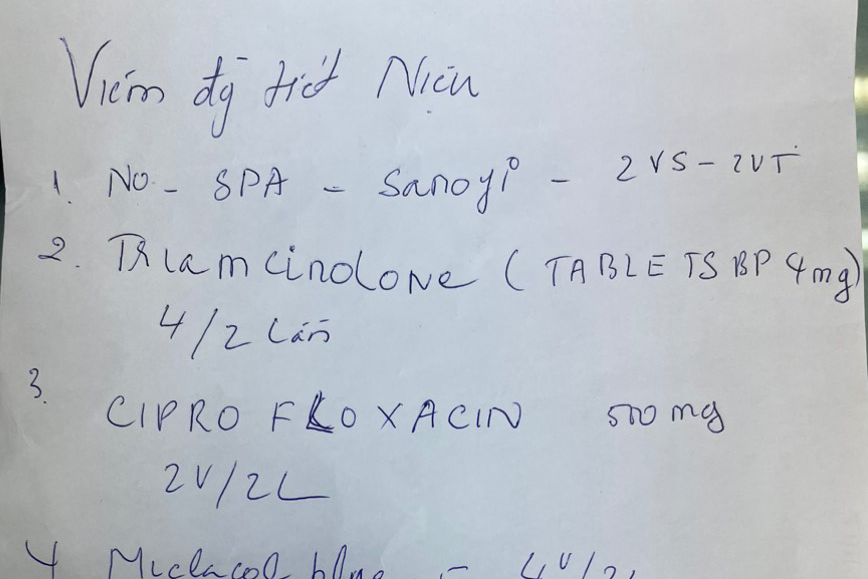 Viêm đg tiết Niệu
1. No - SPA - Sanoyi - 2 VS - 2VT
2. TRiamcinoLoNe ( TABLETS BP 4mg)
4/2 lần
3.
CIPRO FLOXACIN 500 mg
2V/2L
4 Miclacol blue - 4V/2L